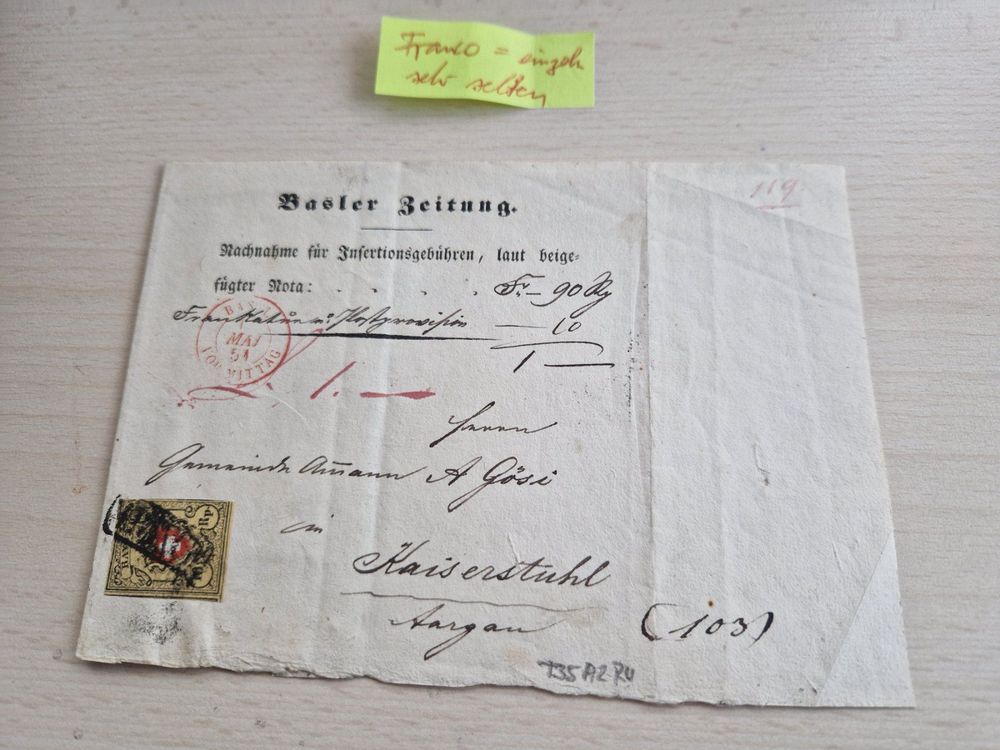 Franco =
sehr selten
119
Basler Zeitung.
Nachnahme für Insertionsgebühren, laut beige=
fügter Nota: . . . . Fr — 90 Rp
Frankatur u: Postprovision — 10
1 —
BASEL
MAI
51
VORMITTAG
1. —
Herrn
Gemeinde Amann A Gösi
in
Kaiserstuhl
Aargau
Rp.
(103)
T35 A2 RU